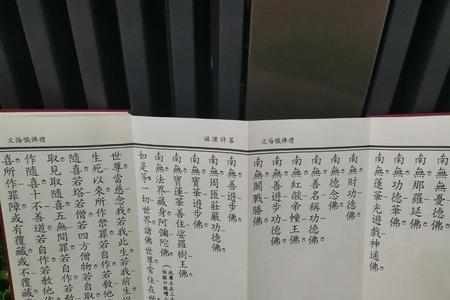 禮佛懺悔文
南無無憂德佛
南無那羅延佛
南無功德華佛
南無蓮華光遊戲神通佛
南無財功德佛
南無德念佛
南無善名稱功德佛
南無紅燄帝幢王佛
南無善遊步功德佛
南無鬭戰勝佛
暮時課誦
南無善遊步佛
南無周匝莊嚴功德佛
南無寶華遊步佛
南無寶蓮華善住娑羅樹王佛
南無法界藏身阿彌陀佛
如是等一切世界諸佛世尊常住在世
禮佛懺悔文
世尊當慈念我若我此生若我前生
生死以來所作眾罪若自作若教他作
隨喜若塔若僧若四方僧物若自取
取見取隨喜五無間罪若自作若教他
作隨喜十不善道若自作若教他
喜所作罪障或有覆藏或不覆藏